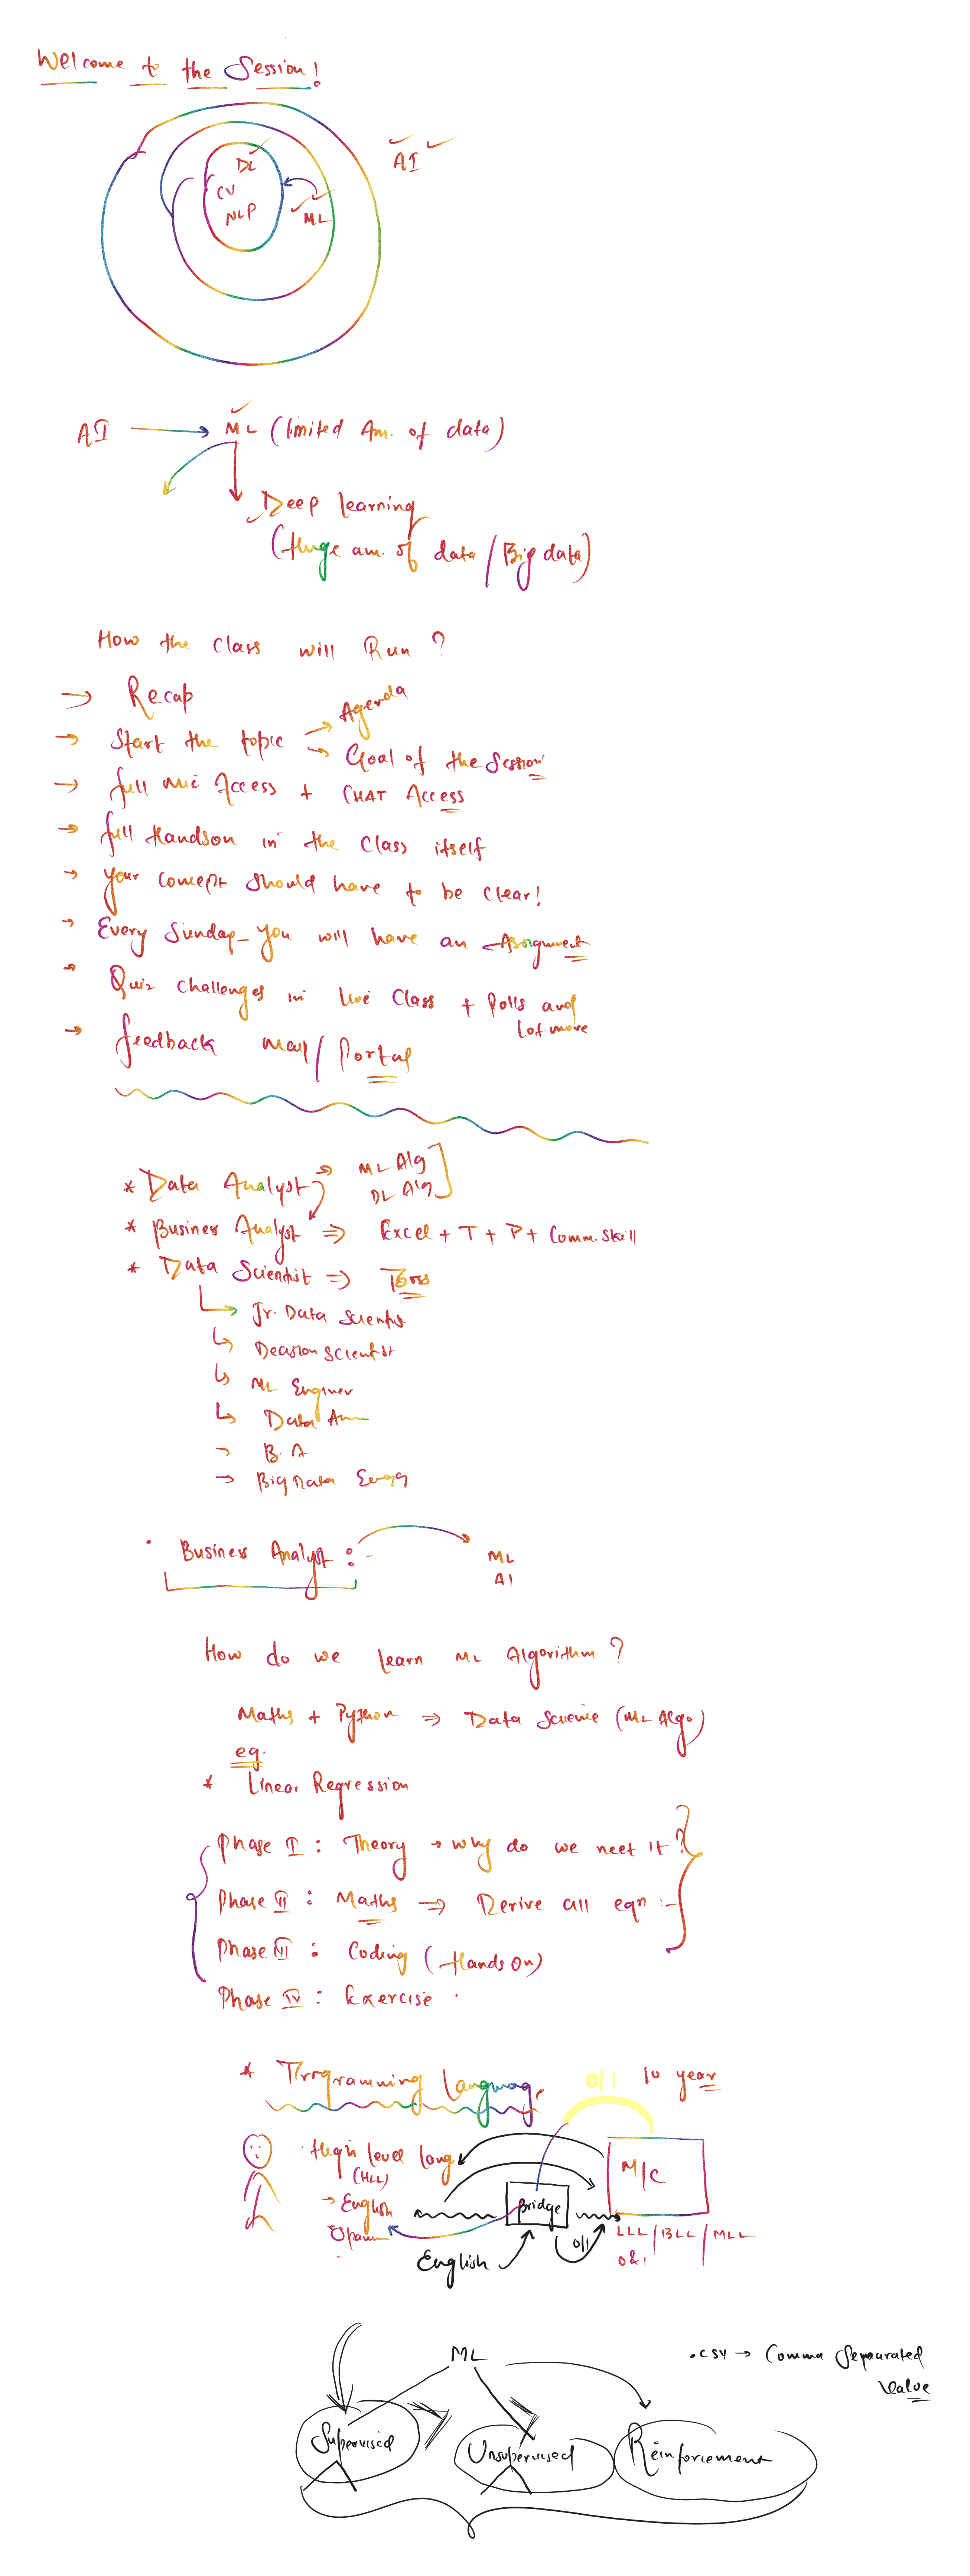 Welcome to the Session!
AI
DL
CV
NLP
ML
AI → ML (limited Am. of data)
Deep learning
(Huge am. of data / Big data)
How the Class will Run ?
→ Recap
→ Start the topic → Agenda
→ Goal of the Session
→ full mic Access + CHAT Access
→ full Handson in the Class itself
→ your concept should have to be clear!
→ Every Sunday - you will have an Assignment
→ Quiz challenges in live Class + Polls and
lot more
→ feedback mail / Portal
* Data Analyst → ML Alg
DL Alg
* Business Analyst ⇒ Excel + T + P + Comm. Skill
* Data Scientist ⇒
Jr. Data Scientist
Decision Scientist
ML Engineer
Data
→ B.A
→ Big Data
Business Analyst :-
ML
AI
How do we learn ML Algorithm ?
Maths + Python ⇒ Data Science (ML Algo)
eg.
* Linear Regression
Phase I : Theory → why do we neet it ?
Phase II : Maths ⇒ Derive all eqn :-
Phase III : Coding (Hands On)
Phase IV : Exercise
* Programming Language
0/1 10 year
High level lang
(HLL)
M/C
→ English
Bridge
LLL / BLL / MLL
0 & 1
English
0/1
ML
.csv → Comma Separated
Value
Supervised
Unsupervised
Reinforcement